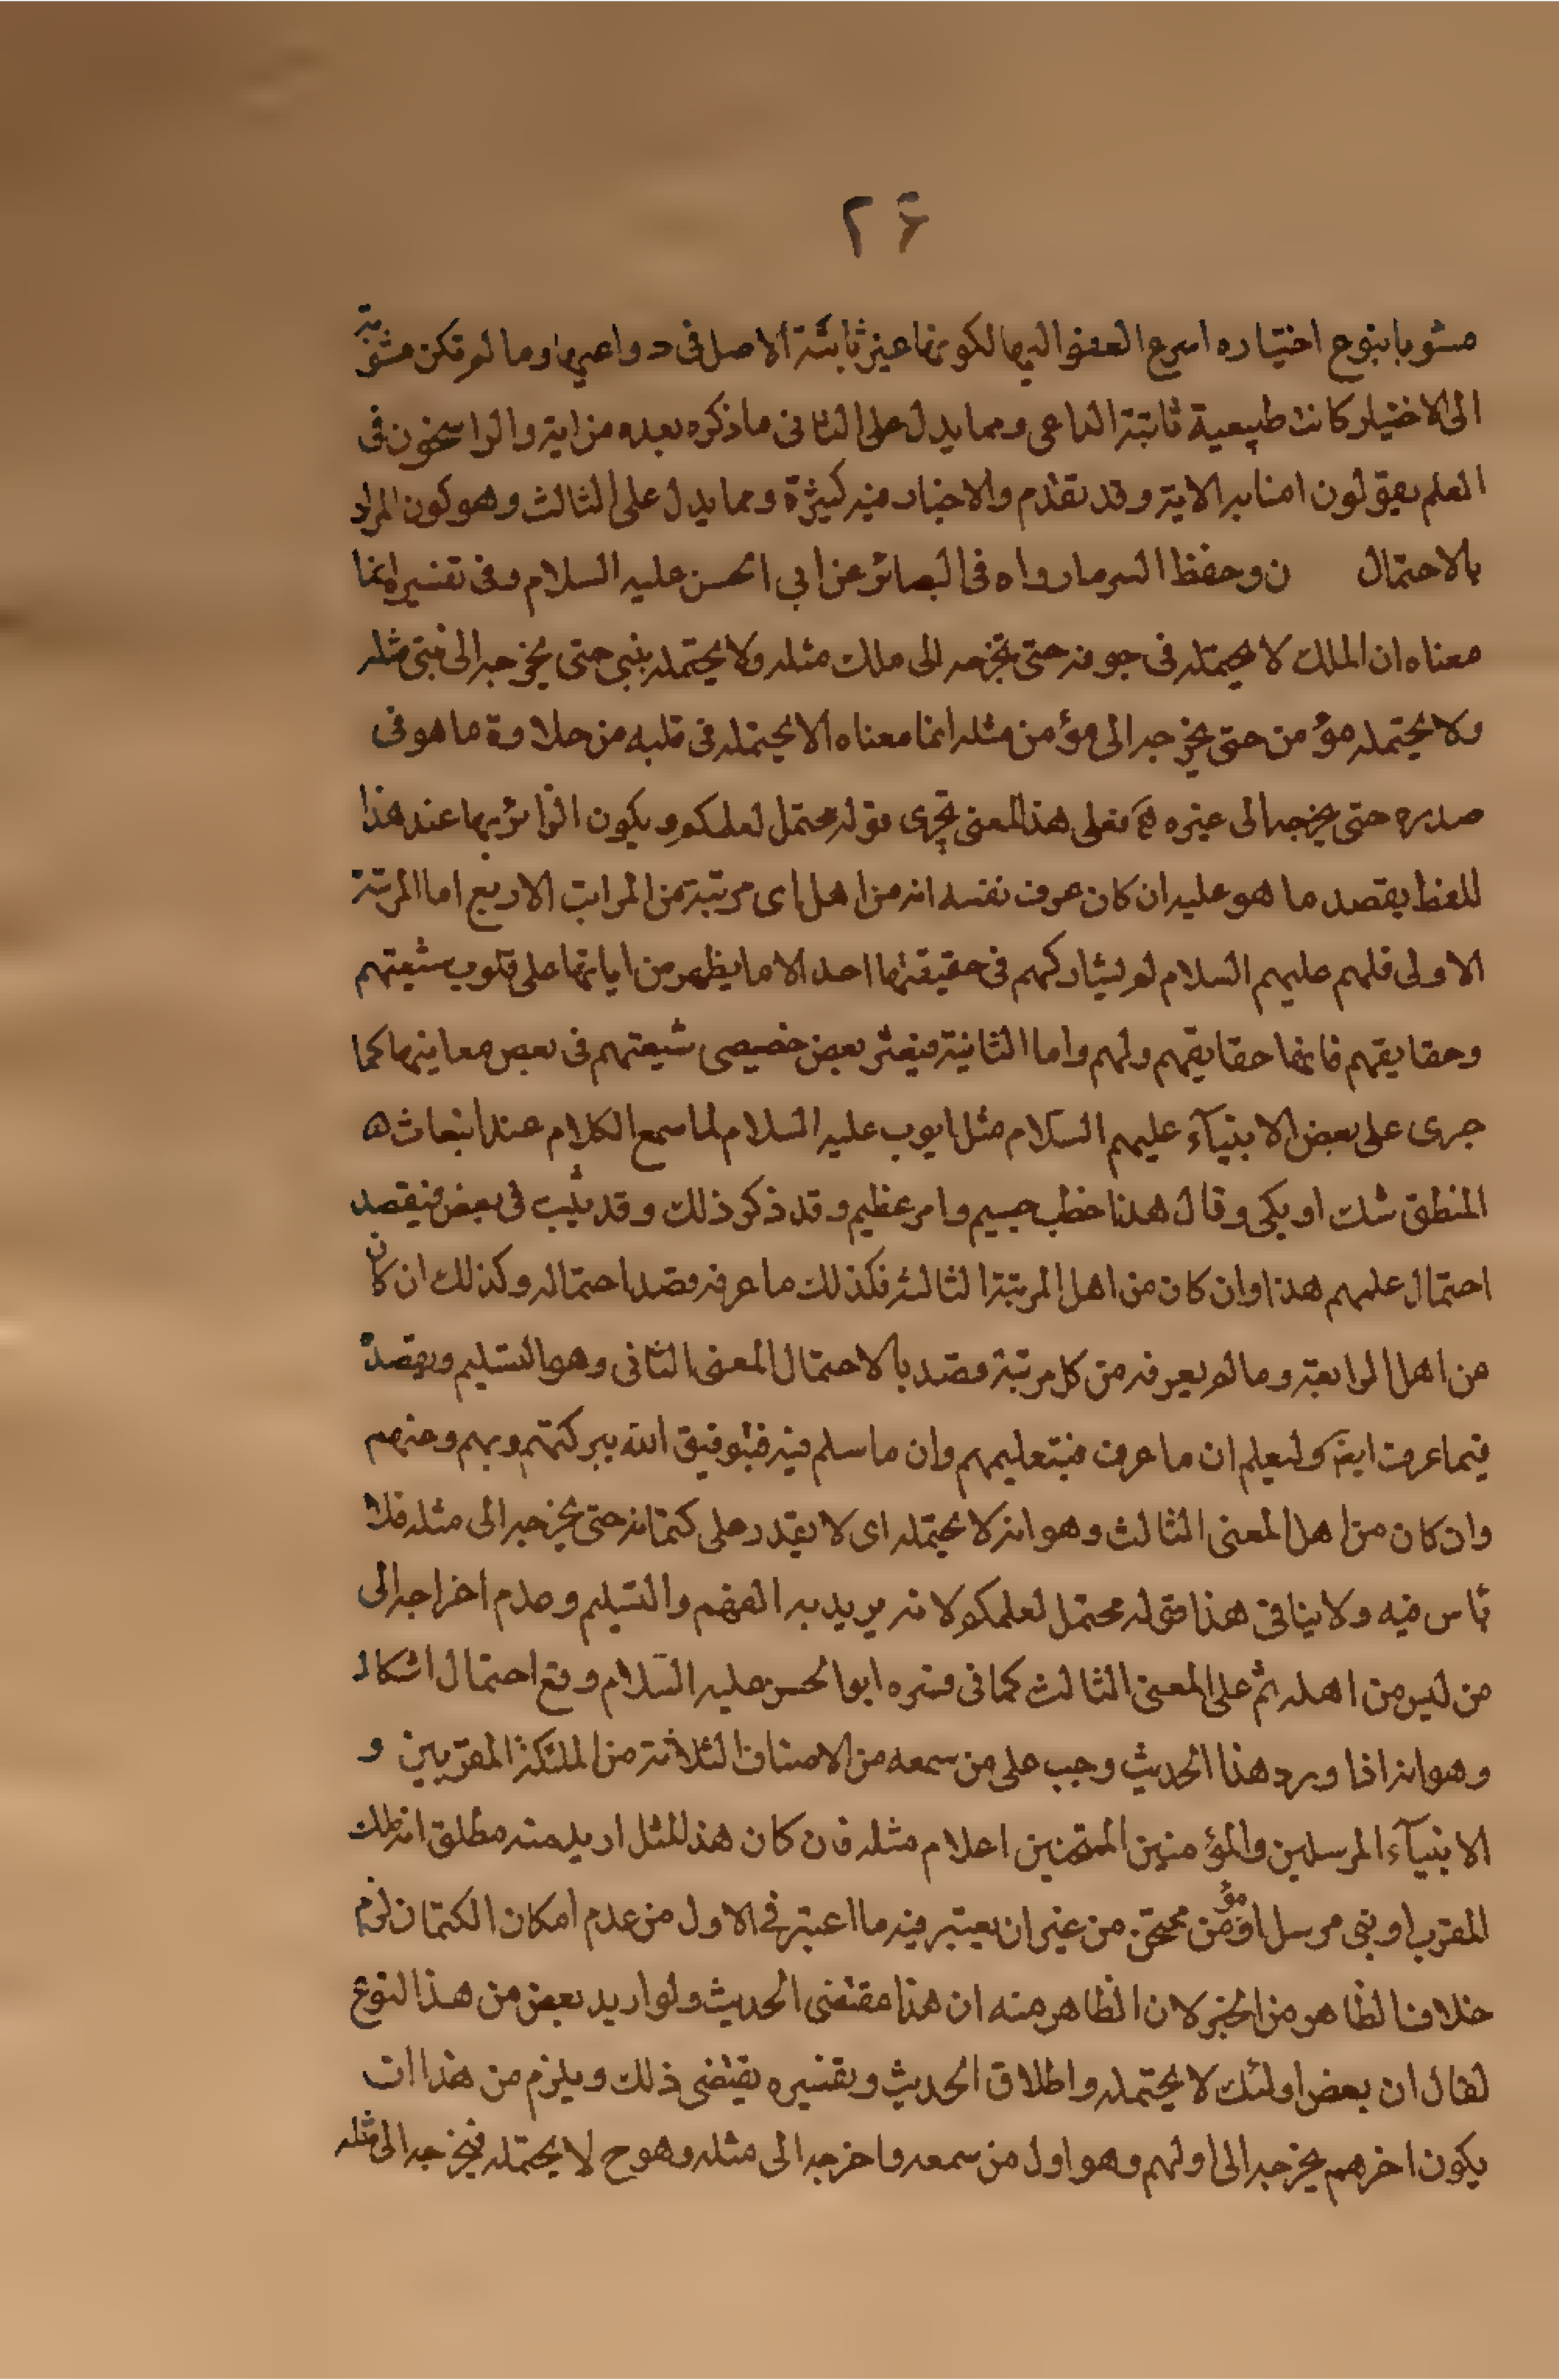 ۲۶
مشوبا بنوع اختياره اسرع العفو اليها لكونها غير ثابتة الاصل فى دواعيها وما لم تكن مشوبة
الى الاختيار كانت طبيعية ثابتة الداعى ومما يدل على الثانى ما ذكره بعده من اية والراسخون فى
العلم يقولون امنا به الاية وقد تقدم والاخبار فيه كثيرة ومما يدل على الثالث وهو كون المراد
بالاحتمال ن وحفظ السر ما رواه فى البصائر عن ابي الحسن عليه السلام وفى تفسيره انما
معناه ان الملك لا يحتمله فى جوفه حتى يخرجه الى ملك مثله ولا يحتمله نبى حتى يخرجه الى نبى مثله
ولا يحتمله مؤمن حتى يخرجه الى مؤمن مثله انما معناه الا يحتمله فى قلبه من حلاوة ما هو فى
صدره حتى يخرجه الى غيره فعلى هذا المعنى تجرى قوله محتمل لعلمكم ويكون الزائر بها عند هذا
اللفظ يقصد ما هو عليه ان كان عرف نفسه انه من اهل اى مرتبة من المراتب الاربع اما المرتبة
الاولى فلهم عليهم السلام لم يشاركهم فى حقيقتها احد الا ما يظهر من اياتها على قلوب شيعتهم
وحقايقهم فانها حقايقهم ولهم واما الثانية فيعثر بعض خصيصى شيعتهم فى بعض معاينها كما
جرى على بعض الانبيآء عليهم السلام مثل ايوب عليه السلام لما سمع الكلام عند انبعاث ه
المنطق شك او بكى وقال هذا خطب جسيم وامر عظيم وقد ذكر ذلك وقد يثبت فى بعض فيقصد
احتمال علمهم هذا وان كان من اهل المرتبة الثالثة فكذلك ما عرفه قصد احتماله وكذلك ان كان
من اهل الرابعة وما لم يعرفه من كل مرتبة قصد بالاحتمال المعنى الثانى وهو التسليم ويقصد
فيما عرف ايضً وليعلم ان ما عرف فبتعليمهم وان ما سلم فيه فبتوفيق الله ببركتهم وبهم ومنهم
وان كان من اهل المعنى الثالث وهو انه لا يحتمله اى لا يقدر على كتمانه حتى يخرجه الى مثله فلا
باس فيه ولا ينافى هذا قوله محتمل لعلمكم لانه يريد به الفهم والتسليم وعدم اخراجه الى
من ليس من اهله ثم على المعنى الثالث كما فى فسره ابو الحسن عليه السلام وقع احتمال اشكال
وهو انه اذا ورد هذا الحديث وجب على من سمعه من الاصناف الثلاثة من الملئكة المقربين و
الانبيآء المرسلين والمؤمنين الممتحنين اعلام مثله فان كان هذا المثل اريد منه مطلق الملك
المقرب او نبى مرسل او مؤمن ممتحن من غير ان يعتبر فيه ما اعتبر فى الاول من عدم امكان الكتمان لزم
خلاف الظاهر من الخبر لان الظاهر منه ان هذا مقتضى الحديث ولو اريد بعض من هذا النوع
لقال ان بعض اولئك لا يحتمله واطلاق الحديث وتفسيره يقتضى ذلك ويلزم من هذا ان
يكون اخرهم يخرجه الى اولهم وهو اول من سمعه واخرجه الى مثله وهو ح لا يحتمله فيخرجه الى مثله